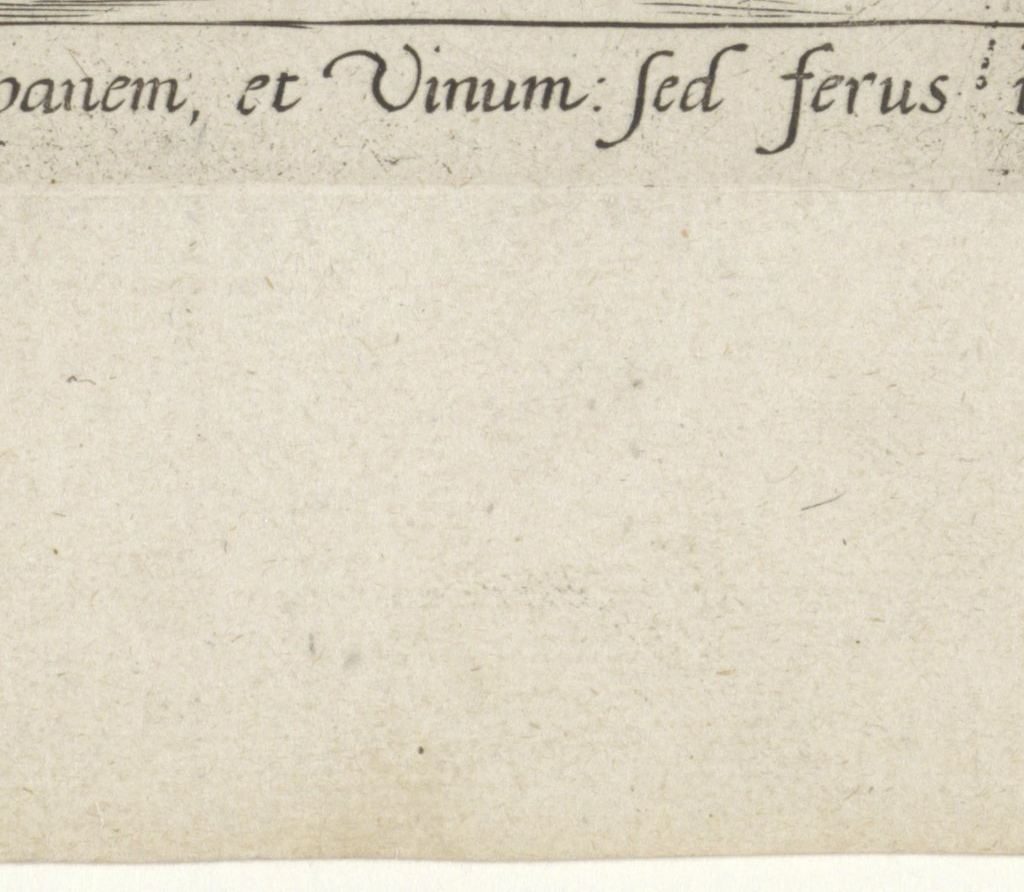 panem, et Vinum: sed ferus